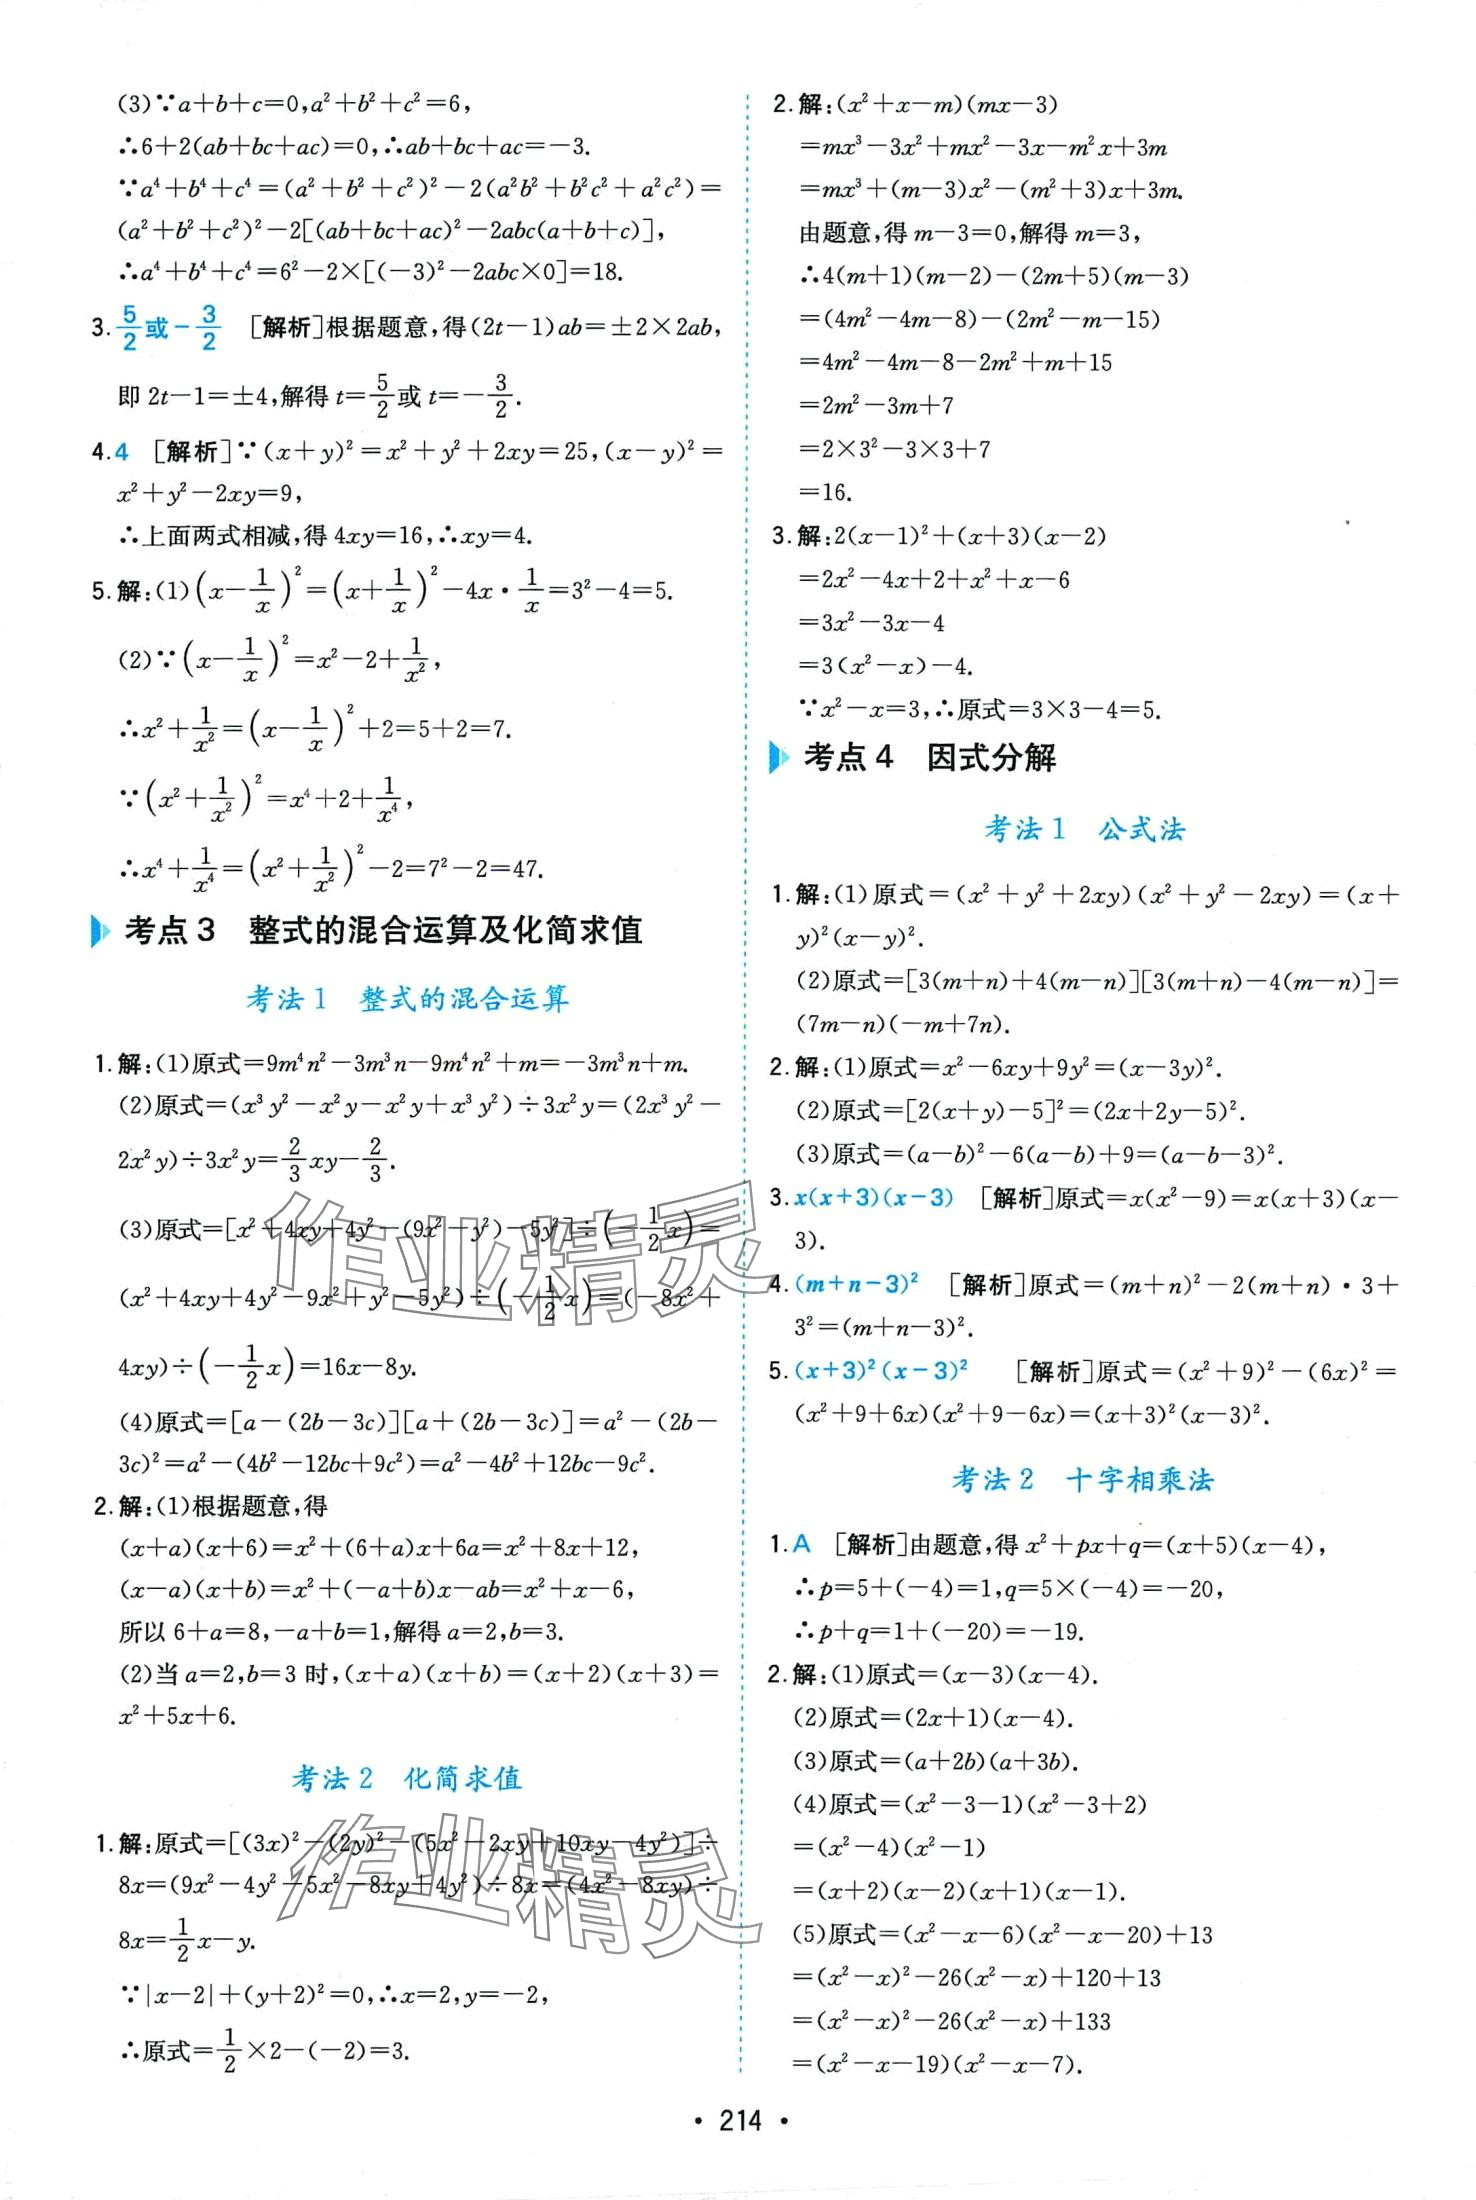 (3)∵a+b+c=0,a²+b²+c²=6,
∴6+2(ab+bc+ac)=0,∴ab+bc+ac=-3.
∵a⁴+b⁴+c⁴=(a²+b²+c²)²-2(a²b²+b²c²+a²c²)=
(a²+b²+c²)²-2[(ab+bc+ac)²-2abc(a+b+c)],
∴a⁴+b⁴+c⁴=6²-2×[(-3)²-2abc×0]=18.
3. 5/2或-3/2 [解析]根据题意,得(2t-1)ab=±2×2ab,
即 2t-1=±4,解得 t=5/2或 t=-3/2.
4. 4 [解析]∵(x+y)²=x²+y²+2xy=25,(x-y)²=
x²+y²-2xy=9,
∴上面两式相减,得 4xy=16,∴xy=4.
5. 解:(1)(x-1/x)²=(x+1/x)²-4x·1/x=3²-4=5.
(2)∵(x-1/x)²=x²-2+1/x²,
∴x²+1/x²=(x-1/x)²+2=5+2=7.
∵(x²+1/x²)²=x⁴+2+1/x⁴,
∴x⁴+1/x⁴=(x²+1/x²)²-2=7²-2=47.
考点 3 整式的混合运算及化简求值
考法 1 整式的混合运算
1. 解:(1)原式=9m⁴n²-3m³n-9m⁴n²+m=-3m³n+m.
(2)原式=(x³y²-x²y-x²y+x³y²)÷3x²y=(2x³y²-
2x²y)÷3x²y=2/3xy-2/3.
(3)原式=[x²+4xy+4y²-(9x²-y²)-5y²]÷(-1/2x)=
(x²+4xy+4y²-9x²+y²-5y²)÷(-1/2x)=(-8x²+
4xy)÷(-1/2x)=16x-8y.
(4)原式=[a-(2b-3c)][a+(2b-3c)]=a²-(2b-
3c)²=a²-(4b²-12bc+9c²)=a²-4b²+12bc-9c².
2. 解:(1)根据题意,得
(x+a)(x+6)=x²+(6+a)x+6a=x²+8x+12,
(x-a)(x+b)=x²+(-a+b)x-ab=x²+x-6,
所以 6+a=8,-a+b=1,解得 a=2,b=3.
(2)当 a=2,b=3 时,(x+a)(x+b)=(x+2)(x+3)=
x²+5x+6.
考法 2 化简求值
1. 解:原式=[(3x)²-(2y)²-(5x²-2xy+10xy-4y²)]÷
8x=(9x²-4y²-5x²-8xy+4y²)÷8x=(4x²-8xy)÷
8x=1/2x-y.
∵|x-2|+(y+2)²=0,∴x=2,y=-2,
∴原式=1/2×2-(-2)=3.
2. 解:(x²+x-m)(mx-3)
=mx³-3x²+mx²-3x-m²x+3m
=mx³+(m-3)x²-(m²+3)x+3m.
由题意,得 m-3=0,解得 m=3,
∴4(m+1)(m-2)-(2m+5)(m-3)
=(4m²-4m-8)-(2m²-m-15)
=4m²-4m-8-2m²+m+15
=2m²-3m+7
=2×3²-3×3+7
=16.
3. 解:2(x-1)²+(x+3)(x-2)
=2x²-4x+2+x²+x-6
=3x²-3x-4
=3(x²-x)-4.
∵x²-x=3,∴原式=3×3-4=5.
考点 4 因式分解
考法 1 公式法
1. 解:(1)原式=(x²+y²+2xy)(x²+y²-2xy)=(x+
y)²(x-y)².
(2)原式=[3(m+n)+4(m-n)][3(m+n)-4(m-n)]=
(7m-n)(-m+7n).
2. 解:(1)原式=x²-6xy+9y²=(x-3y)².
(2)原式=[2(x+y)-5]²=(2x+2y-5)².
(3)原式=(a-b)²-6(a-b)+9=(a-b-3)².
3. x(x+3)(x-3) [解析]原式=x(x²-9)=x(x+3)(x-
3).
4. (m+n-3)² [解析]原式=(m+n)²-2(m+n)·3+
3²=(m+n-3)².
5. (x+3)²(x-3)² [解析]原式=(x²+9)²-(6x)²=
(x²+9+6x)(x²+9-6x)=(x+3)²(x-3)².
考法 2 十字相乘法
1. A [解析]由题意,得 x²+px+q=(x+5)(x-4),
∴p=5+(-4)=1,q=5×(-4)=-20,
∴p+q=1+(-20)=-19.
2. 解:(1)原式=(x-3)(x-4).
(2)原式=(2x+1)(x-4).
(3)原式=(a+2b)(a+3b).
(4)原式=(x²-3-1)(x²-3+2)
=(x²-4)(x²-1)
=(x+2)(x-2)(x+1)(x-1).
(5)原式=(x²-x-6)(x²-x-20)+13
=(x²-x)²-26(x²-x)+120+13
=(x²-x)²-26(x²-x)+133
=(x²-x-19)(x²-x-7).
·214·
作业精灵
作业精灵